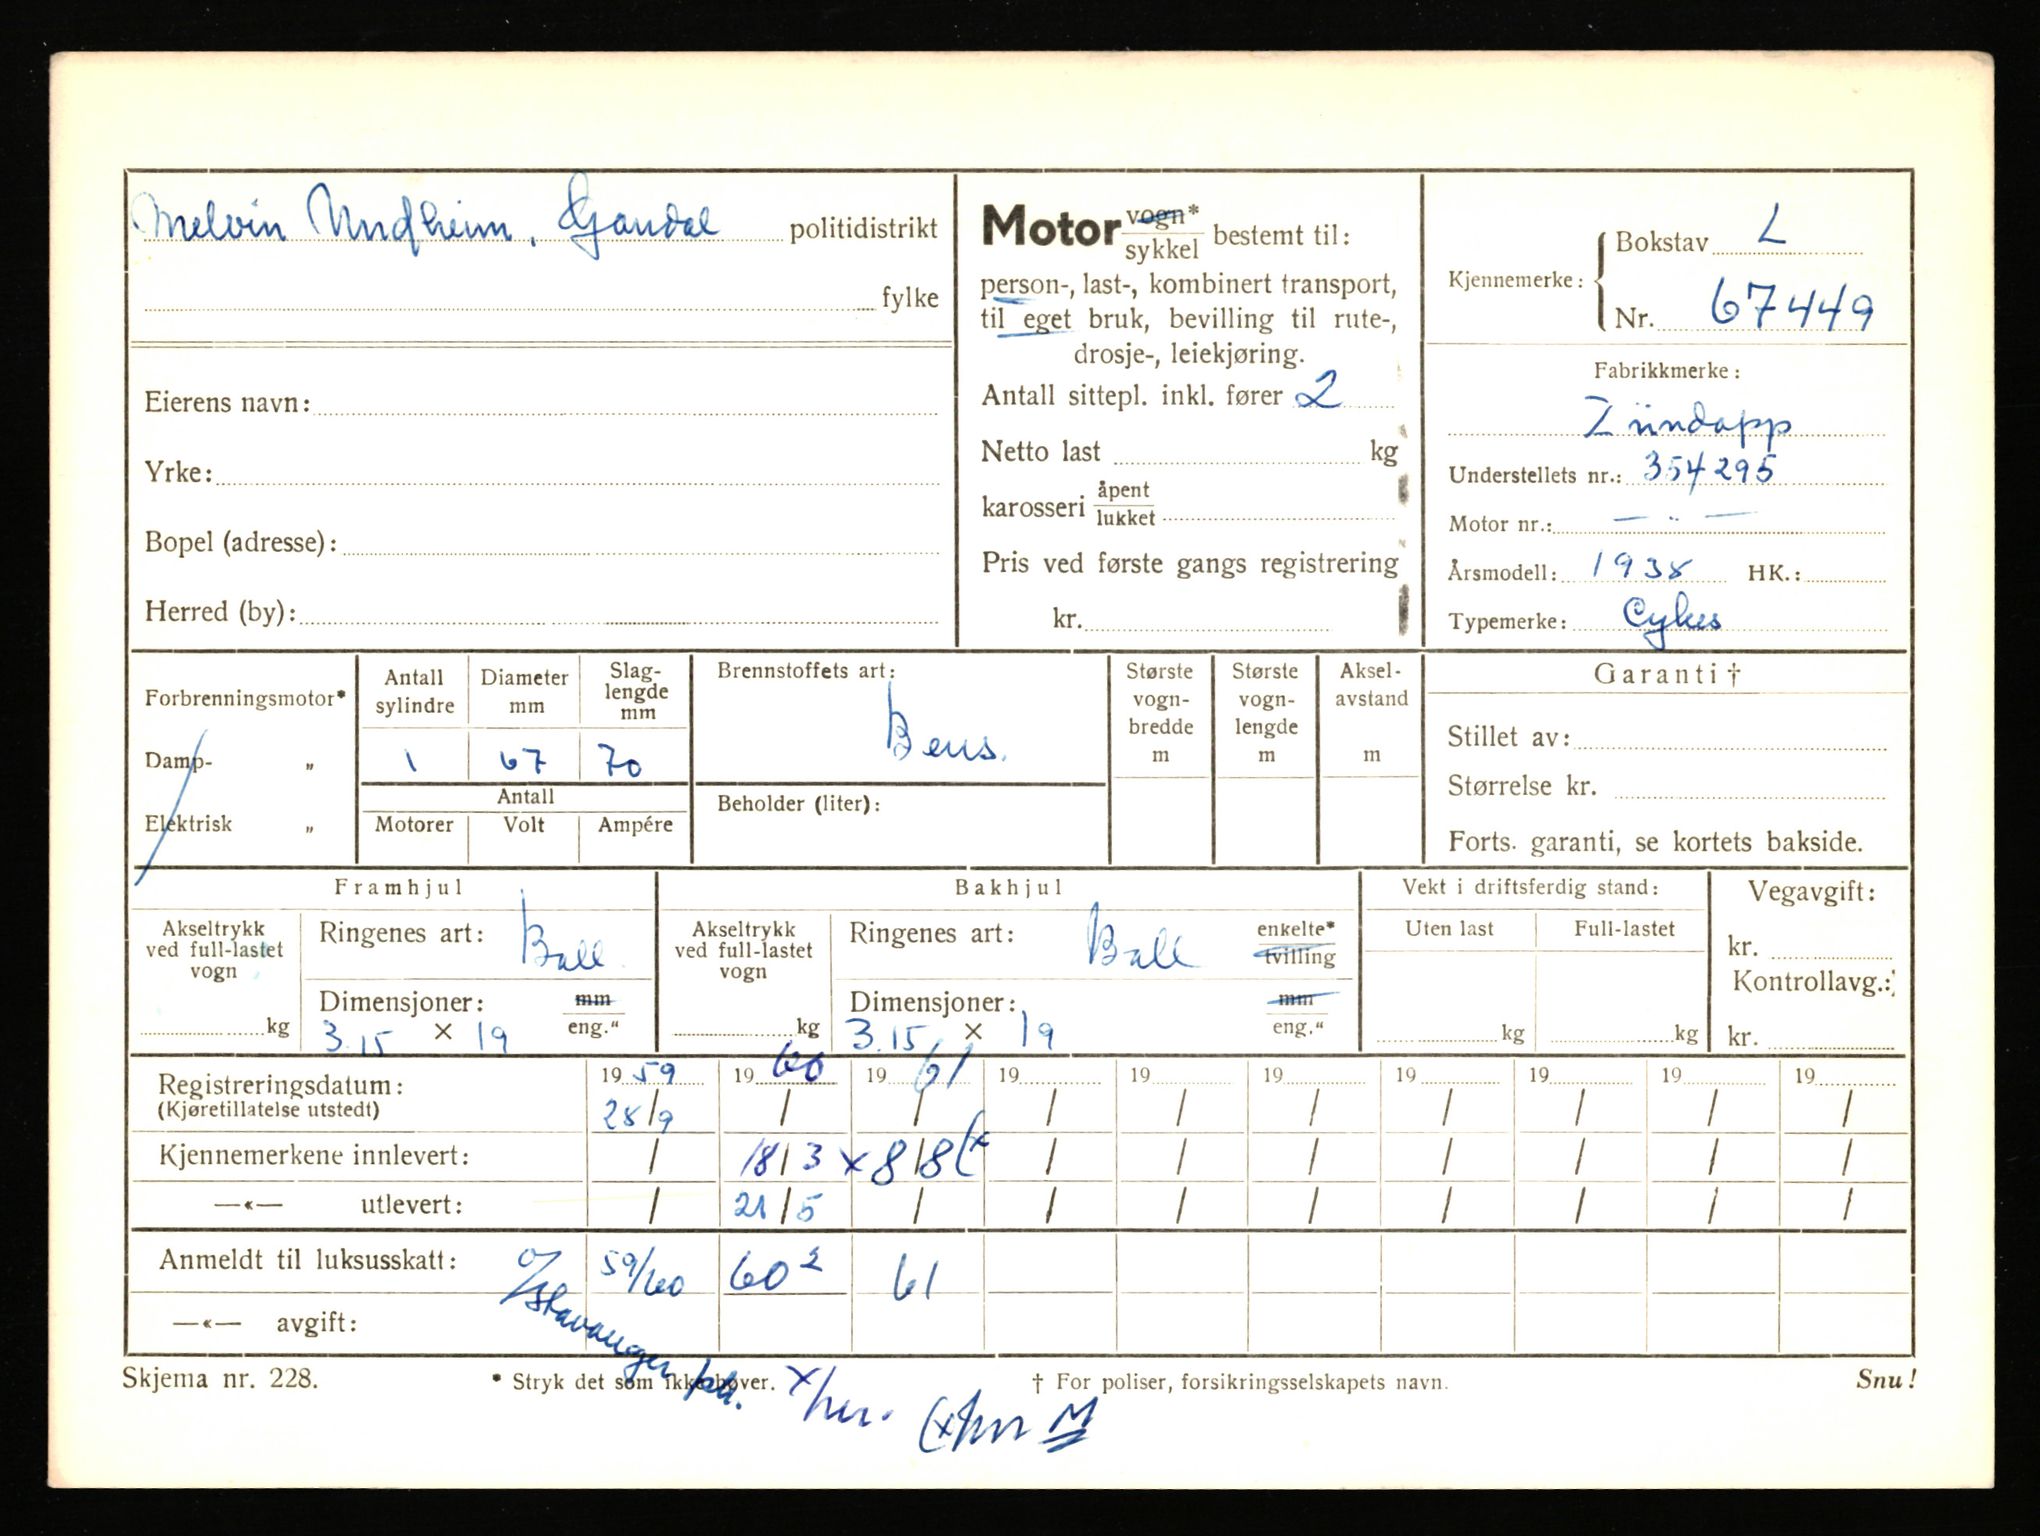 Melvin Undheim, Gandal politidistrikt
fylke
Eierens navn:
Yrke:
Bopel (adresse):
Herred (by):
Motor vogn* sykkel bestemt til:
person-, last-, kombinert transport,
til eget bruk, bevilling til rute-,
drosje-, leiekjøring.
Antall sittepl. inkl. fører 2
Netto last kg
karosseri åpent lukket
Pris ved første gangs registrering
kr.
Kjennemerke: Bokstav L
Nr. 67449
Fabrikkmerke:
Zündapp
Understellets nr.: 354295
Motor nr.: — „ —
Årsmodell: 1938 HK.:
Typemerke: Cykes
Forbrenningsmotor*
Damp- „
Elektrisk „
Antall sylindre
Diameter mm
Slag- lengde mm
1 67 70
Antall
Motorer Volt Ampére
Brennstoffets art:
Bens.
Beholder (liter):
Største vogn- bredde m
Største vogn- lengde m
Aksel- avstand m
Garanti †
Stillet av:
Størrelse kr.
Forts. garanti, se kortets bakside.
Framhjul
Akseltrykk ved full-lastet vogn
kg
Ringenes art: Ball
Dimensjoner: mm eng."
3.15 × 19
Bakhjul
Akseltrykk ved full-lastet vogn
kg
Ringenes art: Ball enkelte* tvilling
Dimensjoner: mm eng."
3.15 × 19
Vekt i driftsferdig stand:
Uten last Full-lastet
kg kg
Vegavgift:
kr.
Kontrollavg.:
kr.
Registreringsdatum: 19 59 19 60 19 61 19 19 19 19 19 19 19
(Kjøretillatelse utstedt) 28/9 / / / / / / / / /
Kjennemerkene innlevert: / 18/3 x 8/8 (x / / / / / / /
—«— utlevert: / 21/5 / / / / / / / /
Anmeldt til luksusskatt: 59/60 60² 61
—«— avgift:
o/Stavanger pk.
Skjema nr. 228.
* Stryk det som ikke høver.
† For poliser, forsikringsselskapets navn.
Snu!
x/her.
(x/her M